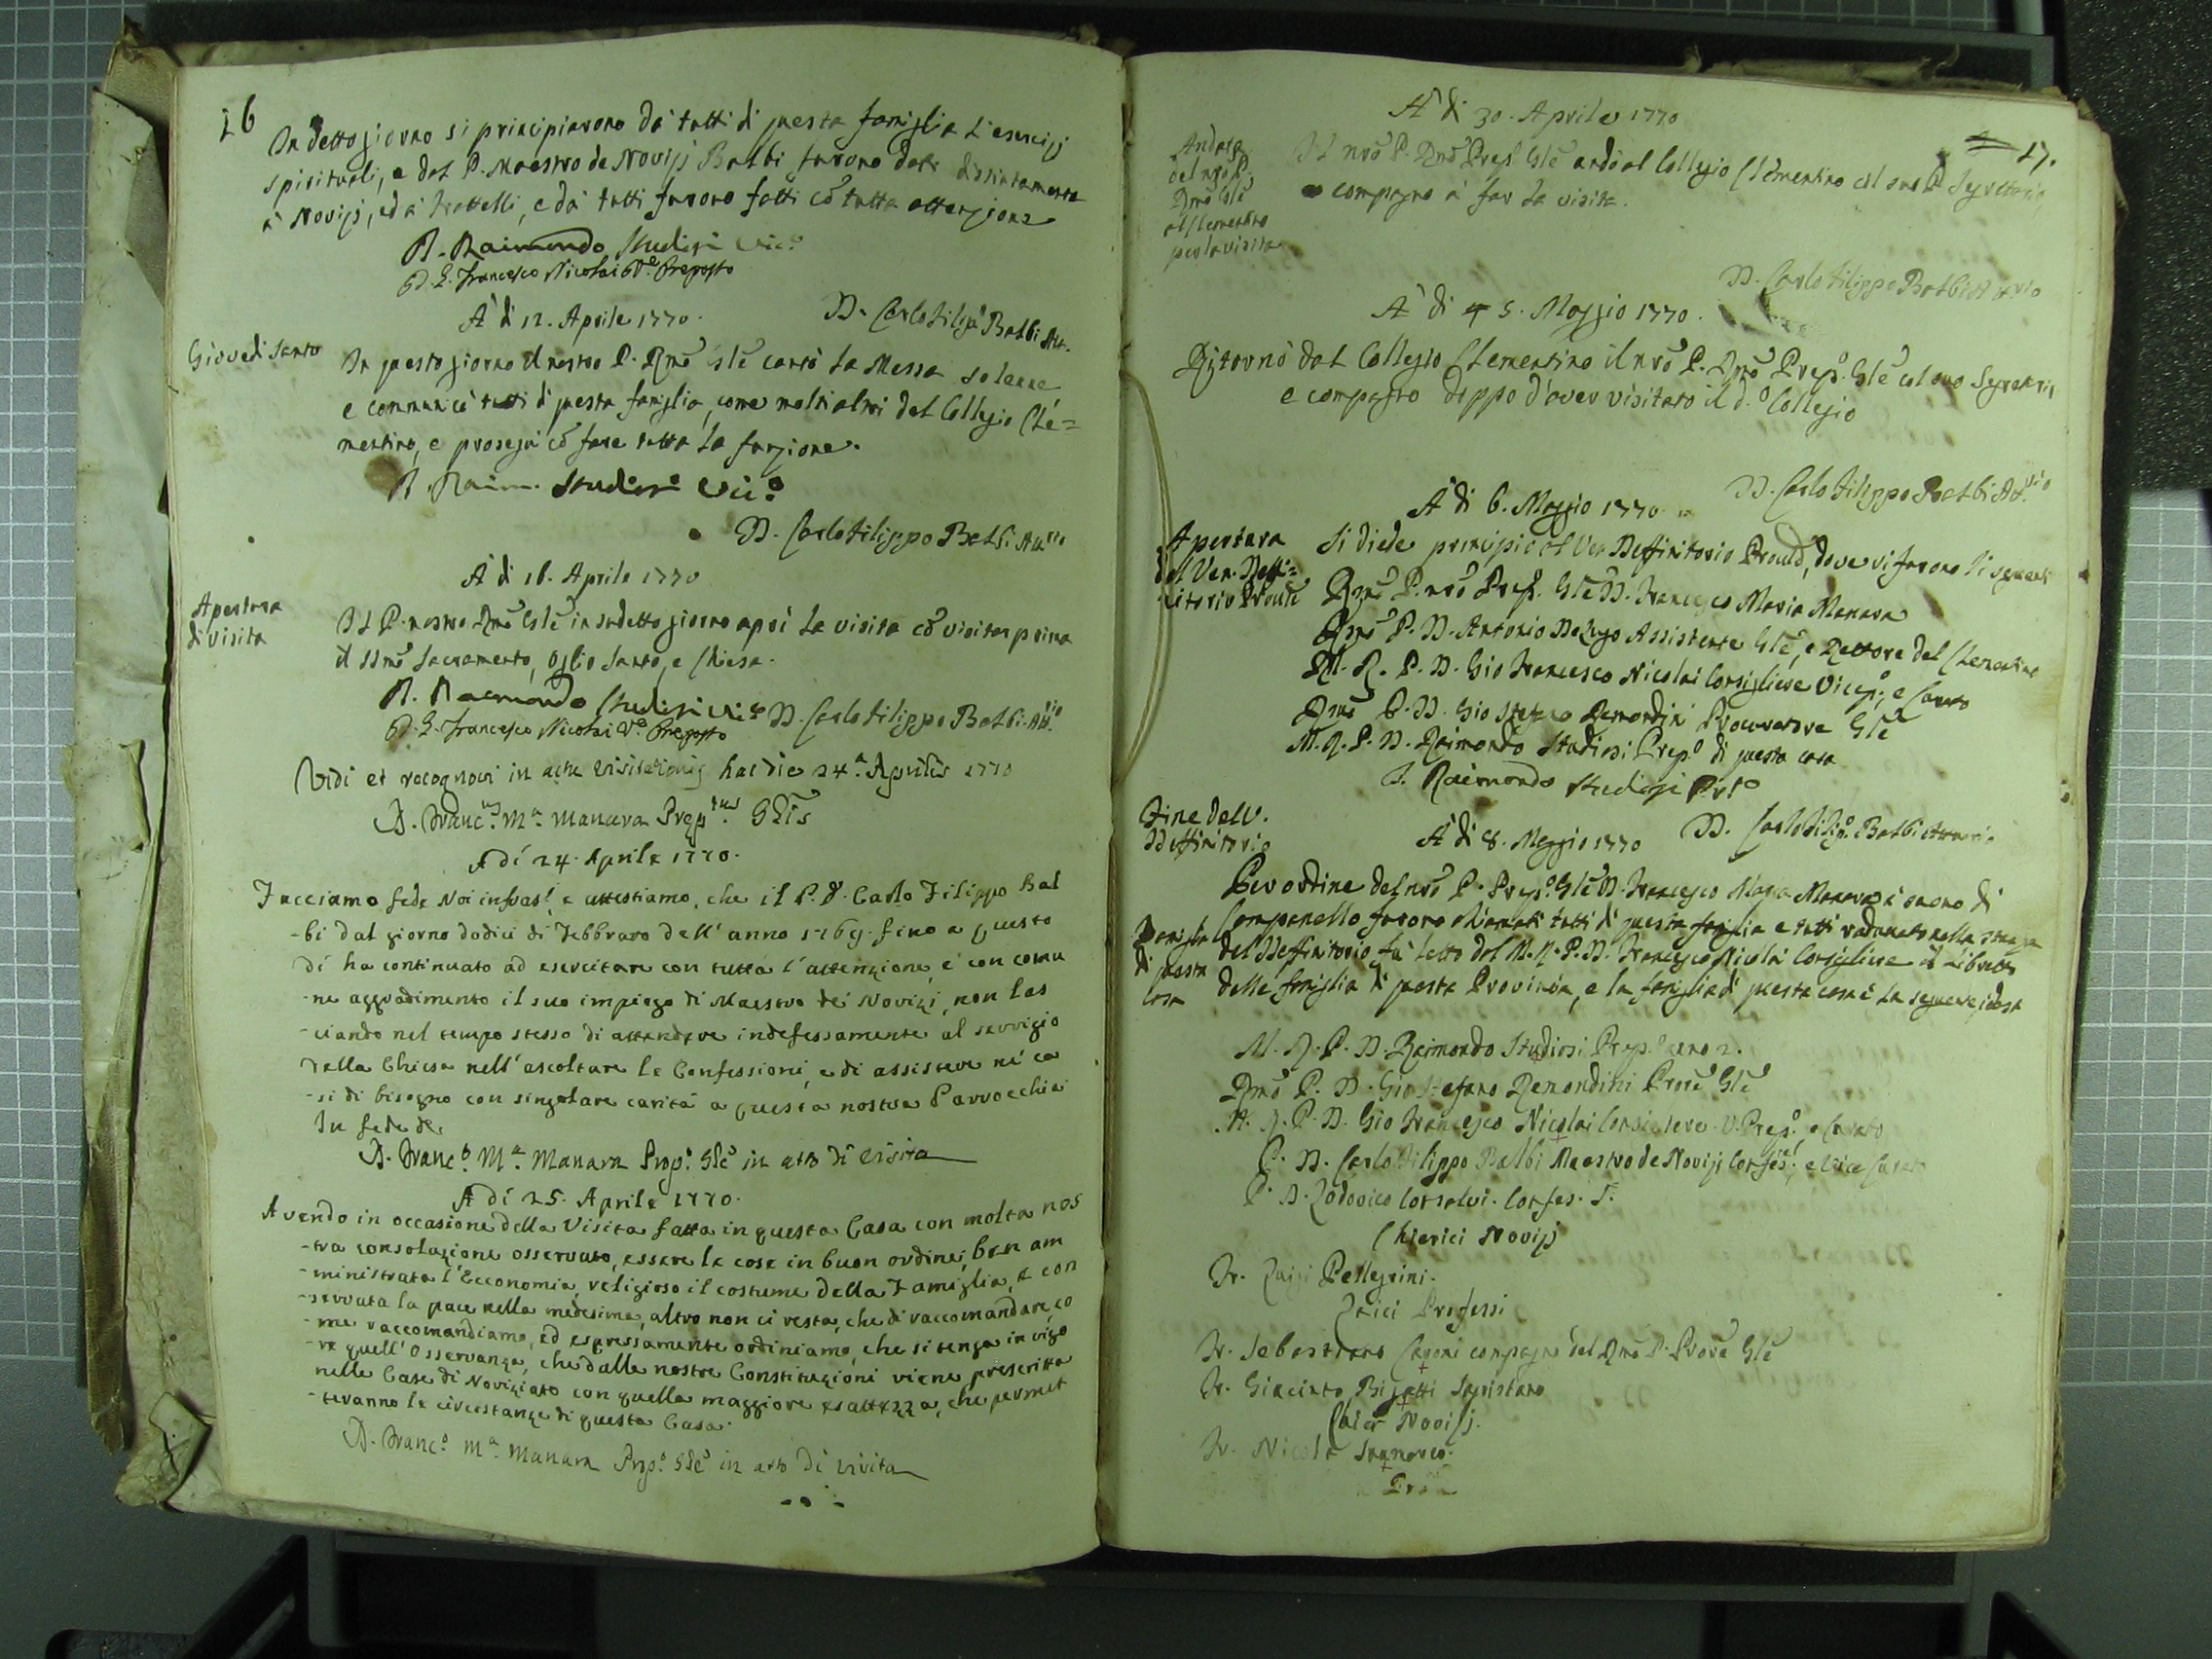 26
In detto giorno si principiarono da tutti di questa famiglia l'esercizj
spirituali, e dal P. Maestro de Novizj Balbi furono dati distintamente
a Novizj, ed a Frattelli, e da tutti furono fatti cõ tutta attenzione
R. Raimondo Studiosi Vic.º
D. G. Francesco Nicolai Vº. Preposto
A di 12. Aprile 1770.
D. Carlo Filipº Balbi Att.
Giovedi Santo
In questo giorno il nostro P. Rmõ Glẽ cantò la Messa solenne
e communicò tutti di questa famiglia, come molti altri del Collegio Cle=
mentino, e proseguì cõ fare tutta la funzione.
R. Raim. Studiosi Vic.º
D. Carlo Filippo Balbi Attrio
A di 16. Aprile 1770
Apertura
di visita
Il P. nostro Rmõ Glẽ in sudetto giorno aprì la visita cõ visitar prima
il SSmõ Sacramento, Oglio Santo, e Chiesa.
R. Raimondo Studiosi Vicº
D. Carlo Filippo Balbi Attrio
D. G. Francesco Nicolai Vº. Preposto
Vidi et recognovi in actu visitationis hac die 24.ª Aprilis 1770
D. Francus Mª. Manara Preptus Glis
A dì 24. Aprile 1770.
Facciamo fede Noi infrasti e attestiamo, che il P. D. Carlo Filippo Bal
-bi dal giorno dodici di Febbraro dell'anno 1769. fino a questo
dì ha continuato ad esercitare con tutta l'attenzione, e con comu
-ne aggradimento il suo impiego di Maestro dei Novizi, non las
-ciando nel tempo stesso di attendere indefessamente al servigio
della Chiesa nell'ascoltare le Confessioni, e di assistere ne' ca
-si di bisogno con singolare carità a questa nostra Parrocchia
In fede de
D. Francº. Mª. Manara Prepº. Glẽ in atto di visita
A dì 25. Aprile 1770.
Avendo in occasione della Visita fatta in questa Casa con molta nos
-tra consolazione osservato, essere le cose in buon ordine, ben am
-ministrata l'Economia, religioso il costume della Famiglia, e con
-servata la pace nella medesima, altro non ci resta, che di raccomandare, co
-me raccomandiamo, ed espressamente ordiniamo, che si tenga in vigo
-re quell'Osservanza, che dalle nostre Constituzioni viene prescritta
nelle Case di Noviziato con quella maggiore esattezza, che permet
-teranno le circostanze di questa Casa.
D. Francº. Mª. Manara Prepº. Glẽ in atto di visita
27.
A di 30. Aprile 1770
Andata
del nro P.
Rmõ Glẽ
al Clementino
per la visita
Il nrõ P. Rmõ Prep. Glẽ andò al Collegio Clementino col suo P. Segretario,
e compagno a far la visita.
D. Carlo Filippo Balbi Attrio
A di 5. Maggio 1770.
Ritornò dal Collegio Clementino il nrõ P. Rmõ Prep. Glẽ col suo Segretario,
e compagno doppo d'aver visitato il d.º Collegio
D. Carlo Filippo Balbi Attrio
A di 6. Maggio 1770.
Apertura
del Ven. Deffi=
nitorio Provle
Si diede principio al Ven Deffinitorio Provle, dove vi furono li seguenti
Rmõ P. nrõ Prep. Glẽ D. Francesco Maria Manara
Rmõ P. D. Antonio Delugo Assistente Glẽ, e Rettore del Clementino
M. R. P. D. Gio Francesco Nicolai Consigliere Vicepº, e Curato
Rmõ P. D. Gio Stefano Remondini Procuratore Glẽ
M. R. P. D. Raimondo Studiosi Prepº di questa casa
R. Raimondo Studiosi Prepº
D. Carlo Filipº Balbi Attuario
Fine del V.
Deffinitorio
A di 8. Maggio 1770
Per ordine del nrõ P. Prepº. Glẽ D. Francesco Maria Manara a suono di
Campanello furono chiamati tutti di questa famiglia e tutti radunati nella stanza
del Deffinitorio fu letto dal M. R. P. D. Francesco Nicolai Consigliere il Libretto
delle famiglie di questa Provincia, e la famiglia di questa casa è la seguente, cioè
Famiglia
di questa
Casa
M. R. P. D. Raimondo Studiosi Prepº anno 2.
Rmõ P. D. Gio Stefano Remondini Procẽ Glẽ
M. R. P. D. Gio Francesco Nicolai Consigliere V. Prepº, e Curato
P. D. Carlo Filippo Balbi Maestro de Novizj Confes., e Vice Curato
P. D. Lodovico Consalvi. Confes.
Chierici Novizj
Fr. Luigi Pellegrini.
Laici Professi
Fr. Sebastiano compagno del Rmõ P. Procẽ Glẽ
Fr. Giacinto Bigatti Sagristano
Laici Novizj.
Fr. Nicola